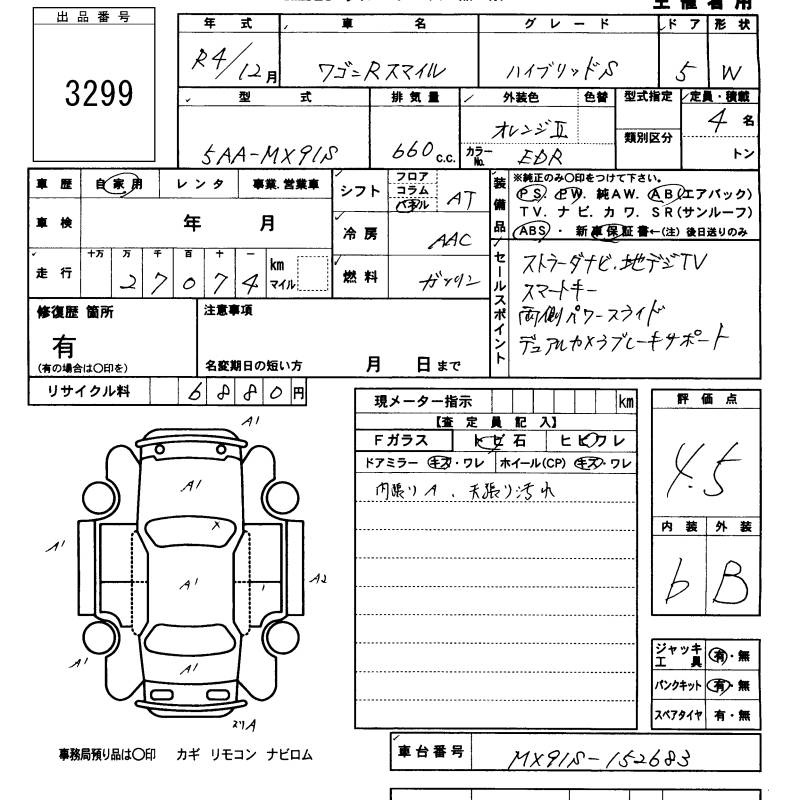 出品番号
3299
年式 車名 グレード ドア 形状
R4/12月 ワゴンRスマイル ハイブリッドS 5 W
型式 排気量 外装色 色替 型式指定 定員・積載
5AA-MX91S 660c.c. オレンジⅡ 類別区分 4名
カラーNo. EDR トン
車歴 自家用 レンタ 事業.営業車
車検 年 月
走行 十万 万 千 百 十 一
27074 km マイル
シフト フロア コラム パネル AT
冷房 AAC
燃料 ガソリン
装備品
※純正のみ○印をつけて下さい。
PS. PW. 純AW. AB(エアバック)
TV. ナビ. カワ. SR(サンルーフ)
ABS・新車保証書←(注)後日送りのみ
セールスポイント
ストラーダナビ.地デジTV
スマートキー
両側パワースライド
デュアルカメラブレーキサポート
修復歴 箇所
有
(有の場合は○印を)
注意事項
名変期日の短い方 月 日まで
リサイクル料 6880円
現メーター指示 km
【査定員記入】
Fガラス トビ石 ヒビワレ
ドアミラー キズ・ワレ ホイール(CP) キズ・ワレ
内張りA. 天張り汚れ
評価点
4.5
内装 外装
b B
ジャッキ工具 有・無
パンクキット 有・無
スペアタイヤ 有・無
A1
A1
x
A1
A1
A2
A1
A1
事務局預り品は○印 カギ リモコン ナビロム
車台番号 MX91S-152683